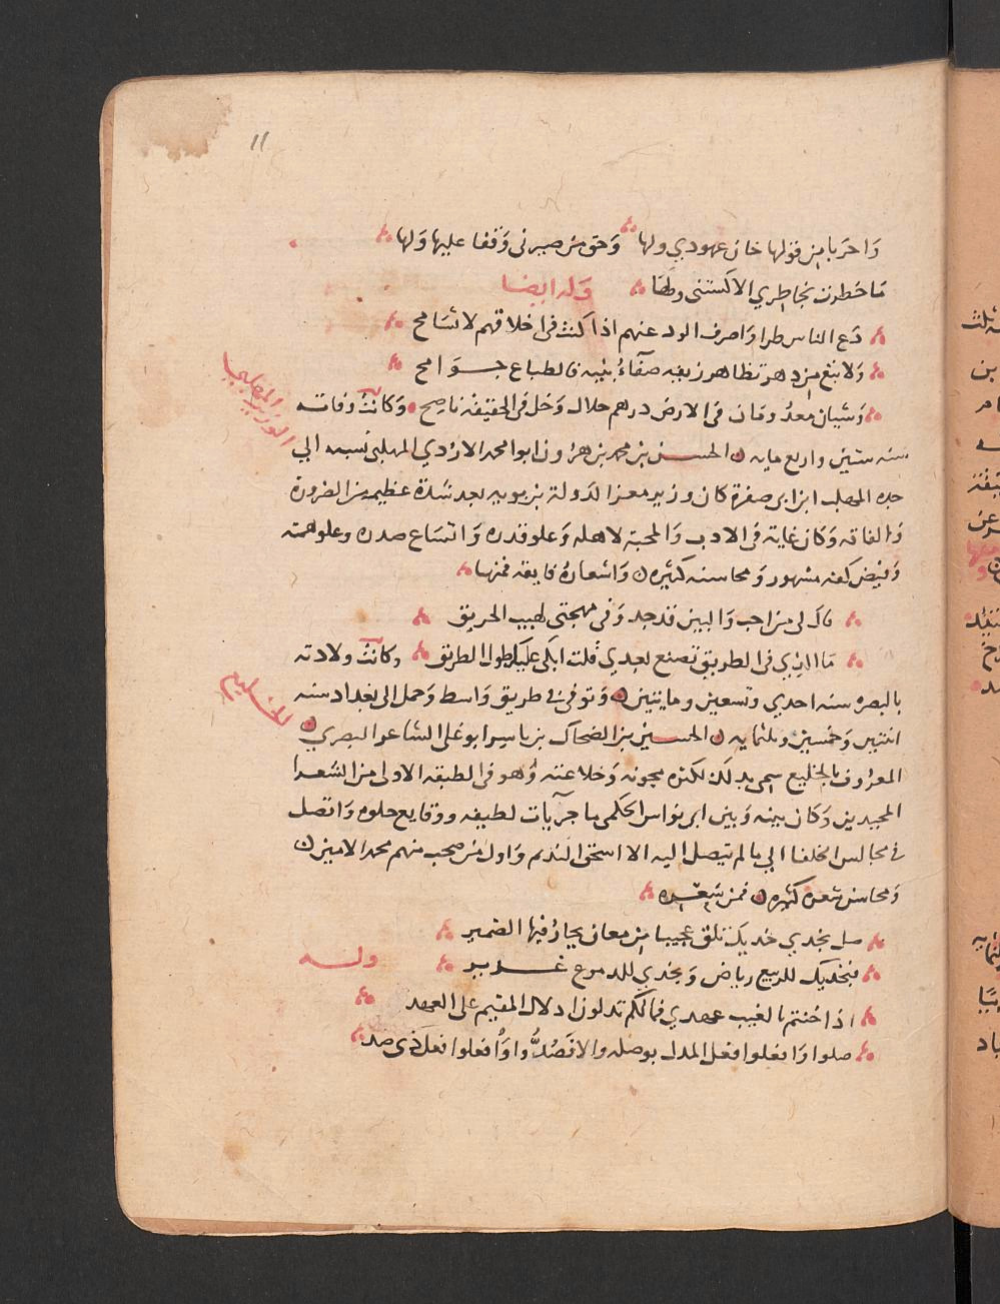 11
وَاحربا من قولها خان عهودي ولها وَحق من صيرنى وَقفا عليها وَلها
مَا خطرت بخاطري الا كستنى ولها وَله ايضا
دَع الناس طرا وَاصرف الود عنهم اذا كنت فى اخلاقهم لا تسَامح
وَلا تبغ من دهر تظاهر زيفه صفآء بنيه فالطباع جــوَامح
وَشيان معدُودان فى الارض درهم حلال وَخل فى الحقيقه ناصح وَكانت وفاته
الوزير المهلبي
سنه ستين واربع مايه الحســن بن محمد بن هرون ابوا محمد الازدي المهلبى نسبه الي
جده المهلب ابن ابى صفرة كان وزير معز الدَولة بن بويه بعد شدة عظيمه من الضرورة
وَالفاقه وَكان غاية فى الادب وَالمحبة لاهله وَعلو قدره وَاتسَاع صدره وعلو همته
وَفيض كفه مشهور وَمحاسنه كثيره وَاشعاره فايقه فمنها
قال لى من احب وَالبين قد جد وَفى مهجتى لهيب الحريق
مَا الذي فى الطريق تصنع بعدي قلت ابكى عليك طول الطريق وكانت ولادته
بالبصره سنه احدي وتسعين ومايتين وَتوفى فى طريق وَاسط وَحمل الى بغداد سنه
الخليع
اثنتين وَخمسين وثلثمايه الحســين بن الضحاك بن ياسر ابو على الشاعر البصري
المعروف بالخليع سمى بذلك لكثرة مجونه وَخلاعته وَهو فى الطبقه الاولى من الشعرا
المجيدين وَكان بينه وَبين ابى نواس الحكمى ماجرَيات لطيفه ووقايع حلوه وَاتصل
فى مجالس الخلفا الي ما لم يتصل اليه الا اسحق النديم وَاول من صحب منهم محمد الامين
وَمحاسن شعره كثيره فمن شعره
صل بخدي خديك تلق عجيبا من معان يحار فيها الضمير
فبخديك للربيع رياض وَبخدي للدموع غــدير ولــه
اذا خنتم بالغيب عهدي فمالكم تدلون ادلال المقيم على العهد
صلوا وَافعلوا فعل المدل بوصله والا فصُدُّوا وَافعلوا فعل ذى صد